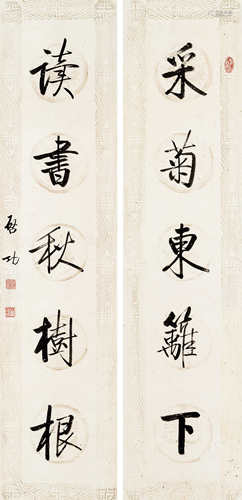 采菊東籬下
读書秋樹根
啓功